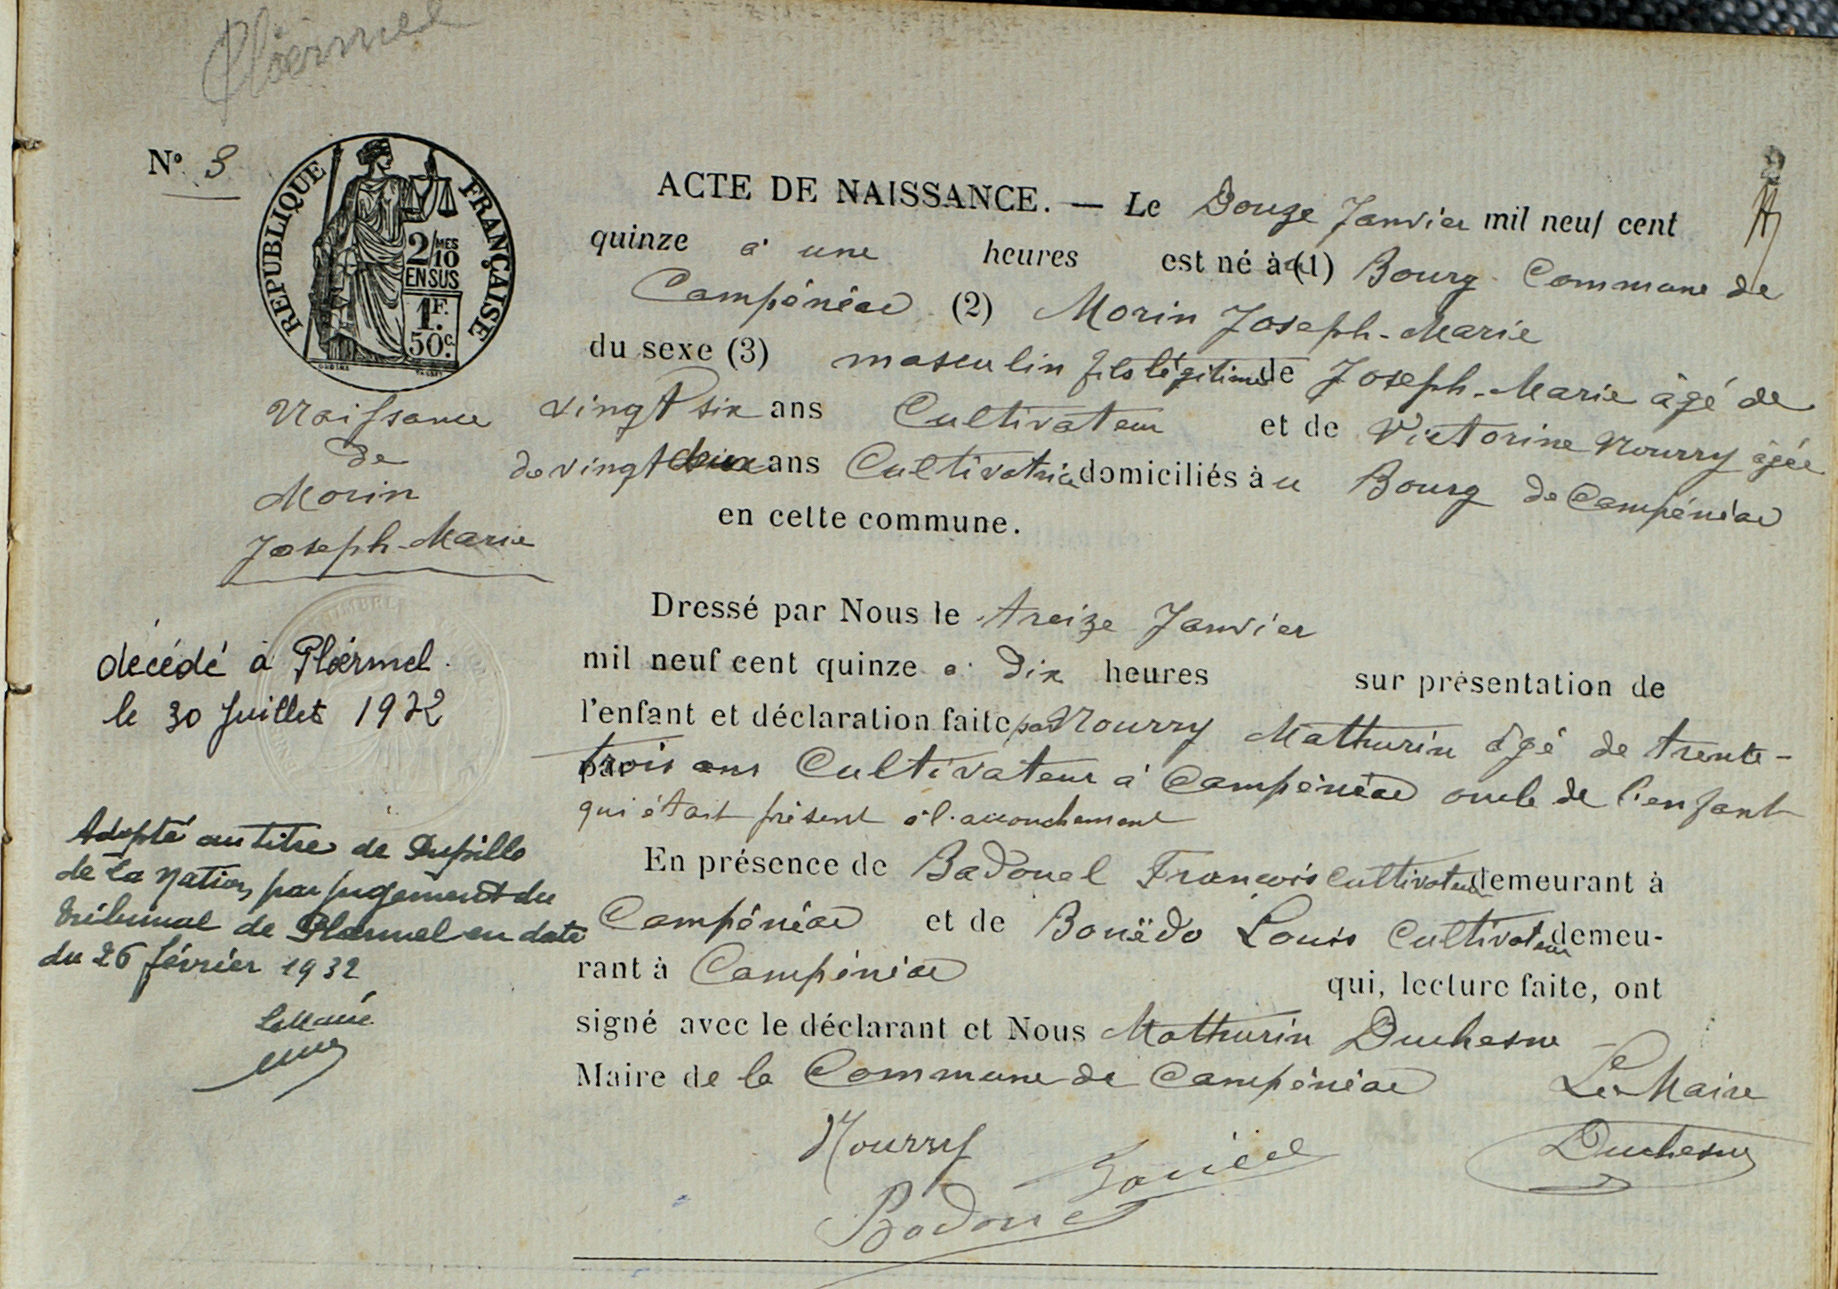 Ploërmel
N° 3
REPUBLIQUE FRANÇAISE
2/10 MES
EN SUS
1F.
50c.
Naissance
de
Morin
Joseph-Marie
décédé à Ploërmel
le 30 Juillet 1972
Adopté au titre de Pupille
de la Nation, par jugement du
tribunal de Ploermel en date
du 26 février 1932
ACTE DE NAISSANCE. — Le Douze Janvier mil neuf cent
quinze à une heures est né à (1) Bourg Commune de
Campénéac (2) Morin Joseph-Marie
du sexe (3) masculin fils légitime de Joseph-Marie âgé de
vingt six ans Cultivateur et de Victorine Nourry âgée
de vingt deux ans Cultivatrice domiciliés à u Bourg de Campénéac
en cette commune.
Dressé par Nous le treize Janvier
mil neuf cent quinze à dix heures sur présentation de
l'enfant et déclaration faite par Nourry Mathurin âgé de trente-
trois ans Cultivateur à Campénéac oncle de l'enfant
qui était présent à l'accouchement
En présence de Badouel François cultivateur demeurant à
Campénéac et de Bouëdo Louis Cultivateur demeu-
rant à Campénéac qui, lecture faite, ont
signé avec le déclarant et Nous Mathurin Duchesne
Maire de la Commune de Campénéac Le Maire
Nourry Duchesne
Badouel